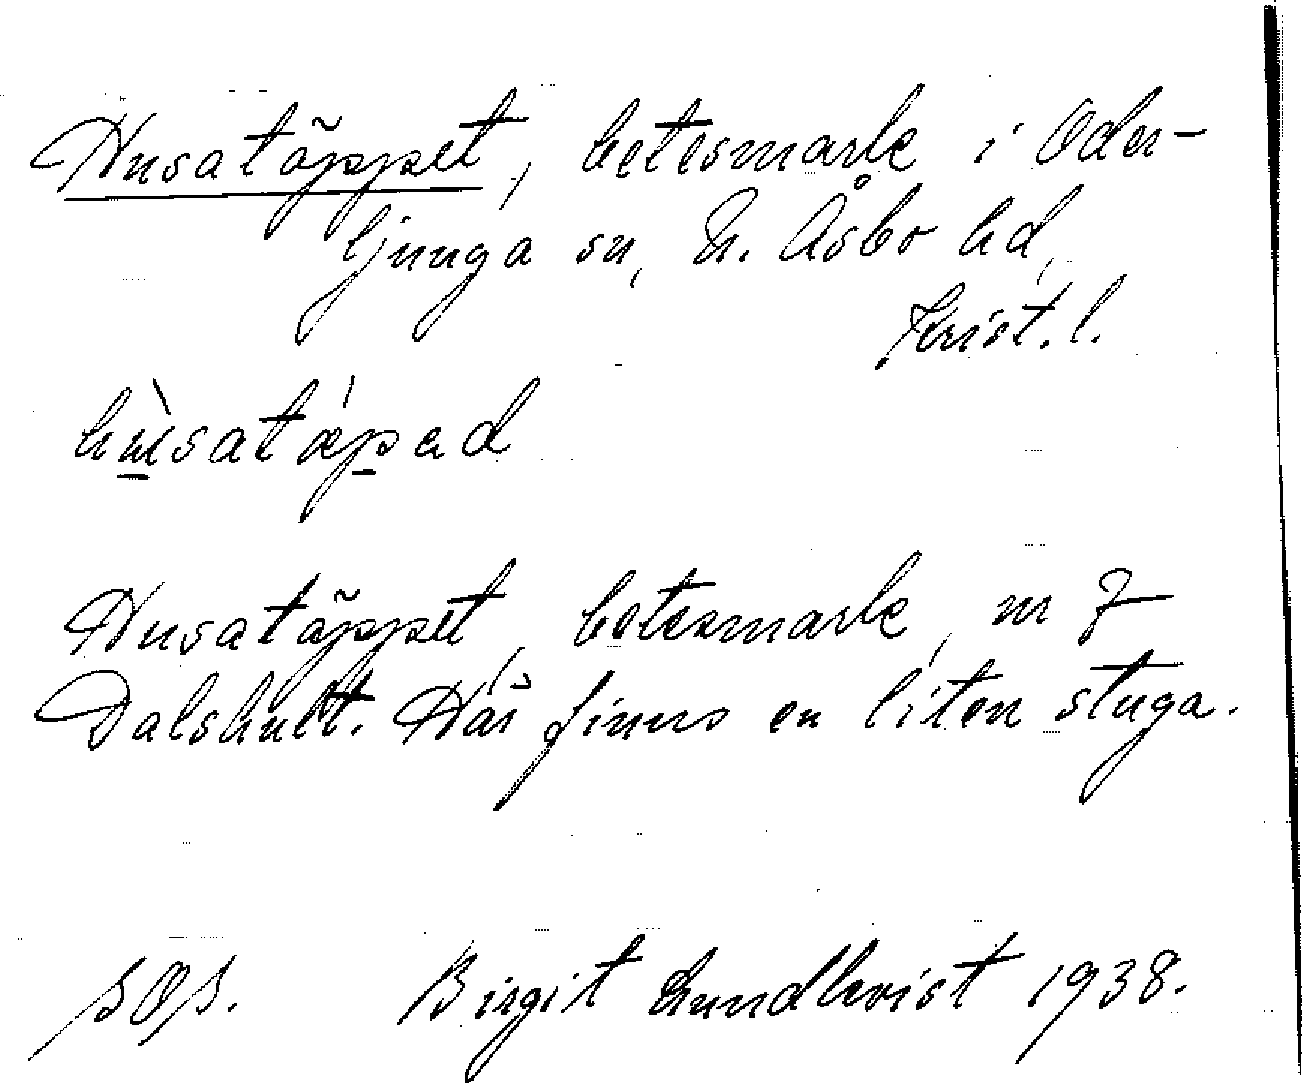 Husatäppet, betesmark i Oder-
ljunga sn, N. Åsbo hd,
Krist. l.
hùsatǽpad
Husatäppet, betesmark, nr 7
Dalshult. Här finns en liten stuga.
SOS. Birgit Lundkvist 1938.